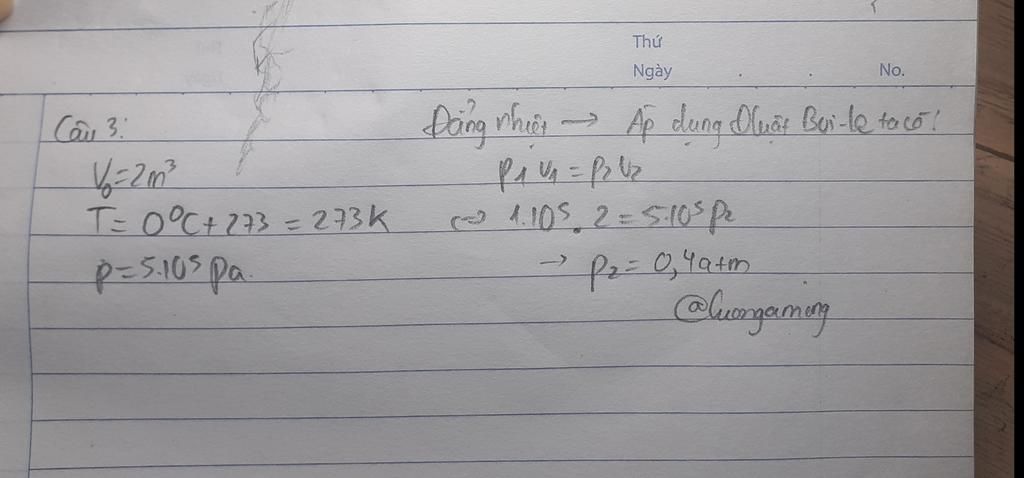 Thứ
Ngày . . No.
Câu 3:
V₀=2m³
T= 0⁰C+273 = 273K
p=5.10⁵ Pa.
Đẳng nhiệt → Áp dụng Đluật Bơi-lơ ta có:
p₁ V₁ = p₂ V₂
<=> 1.10⁵ . 2 = 5.10⁵ p₂
→ p₂ = 0,4atm